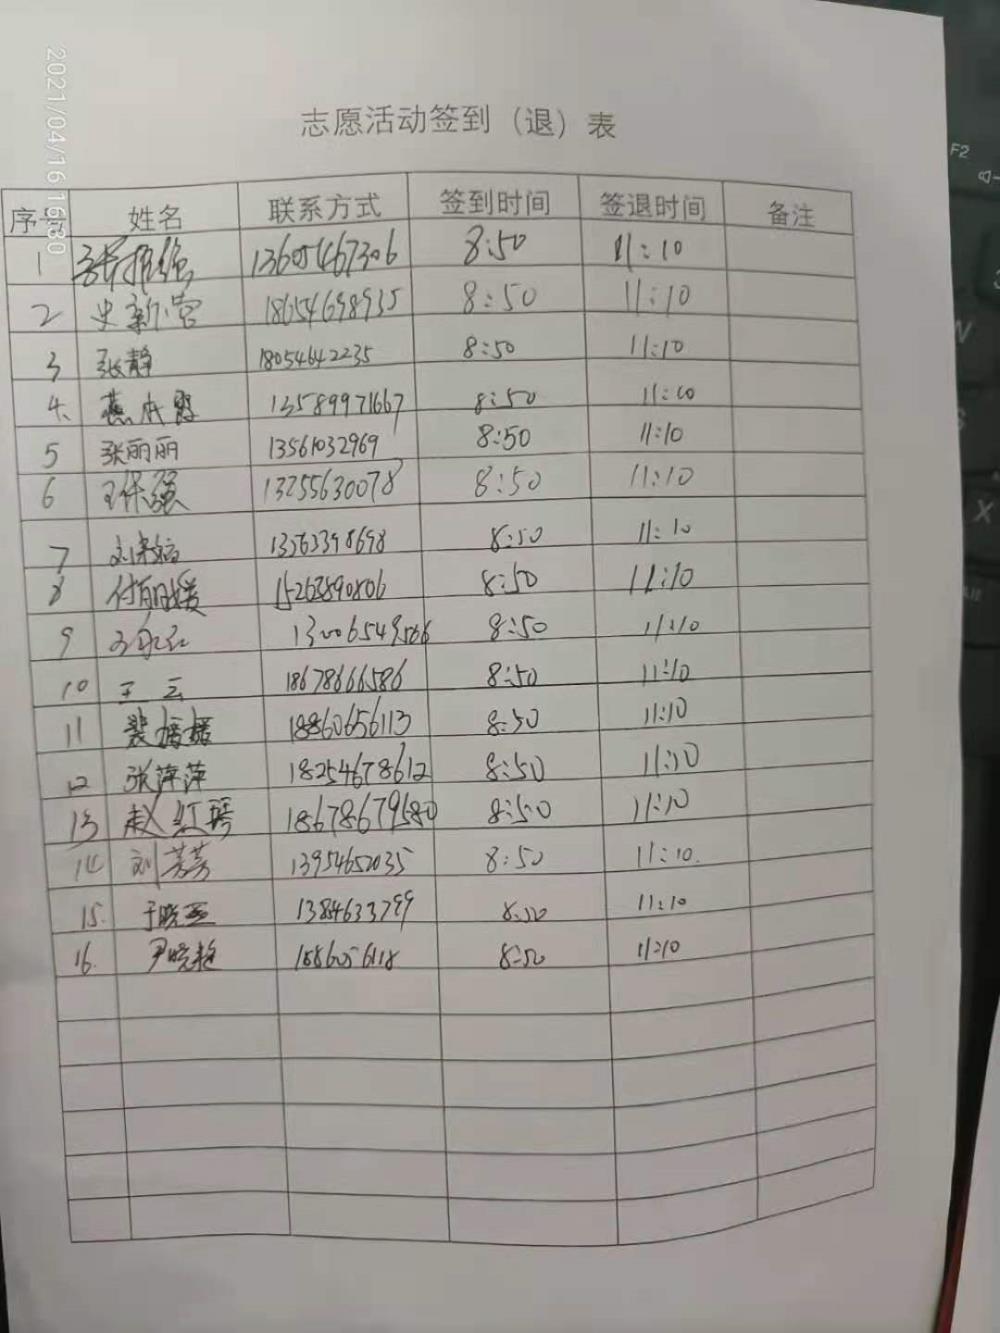 2021/04/16 16:30
志愿活动签到（退）表
序号 姓名 联系方式 签到时间 签退时间 备注
1 13605467306 8:50 11:10
2 史新营 18654698935 8:50 11:10
3 张静 18054642235 8:50 11:10
4. 13589971667 8:50 11:10
5 张丽丽 13561032969 8:50 11:10
6 王保强 13255630078 8:50 11:10
7 13563398698 8:50 11:10
8 付丽媛 15263890806 8:50 11:10
9 8:50 11:10
10 王云 18678666586 8:50 11:10
11 裴媛媛 18860656113 8:50 11:10
12 张萍萍 18254678612 8:50 11:10
13 赵红琴 18678679580 8:50 11:10
14 刘芳芳 13954652035 8:50 11:10.
15. 8:50 11:10
16. 尹晓艳 8:50 11:10
F2